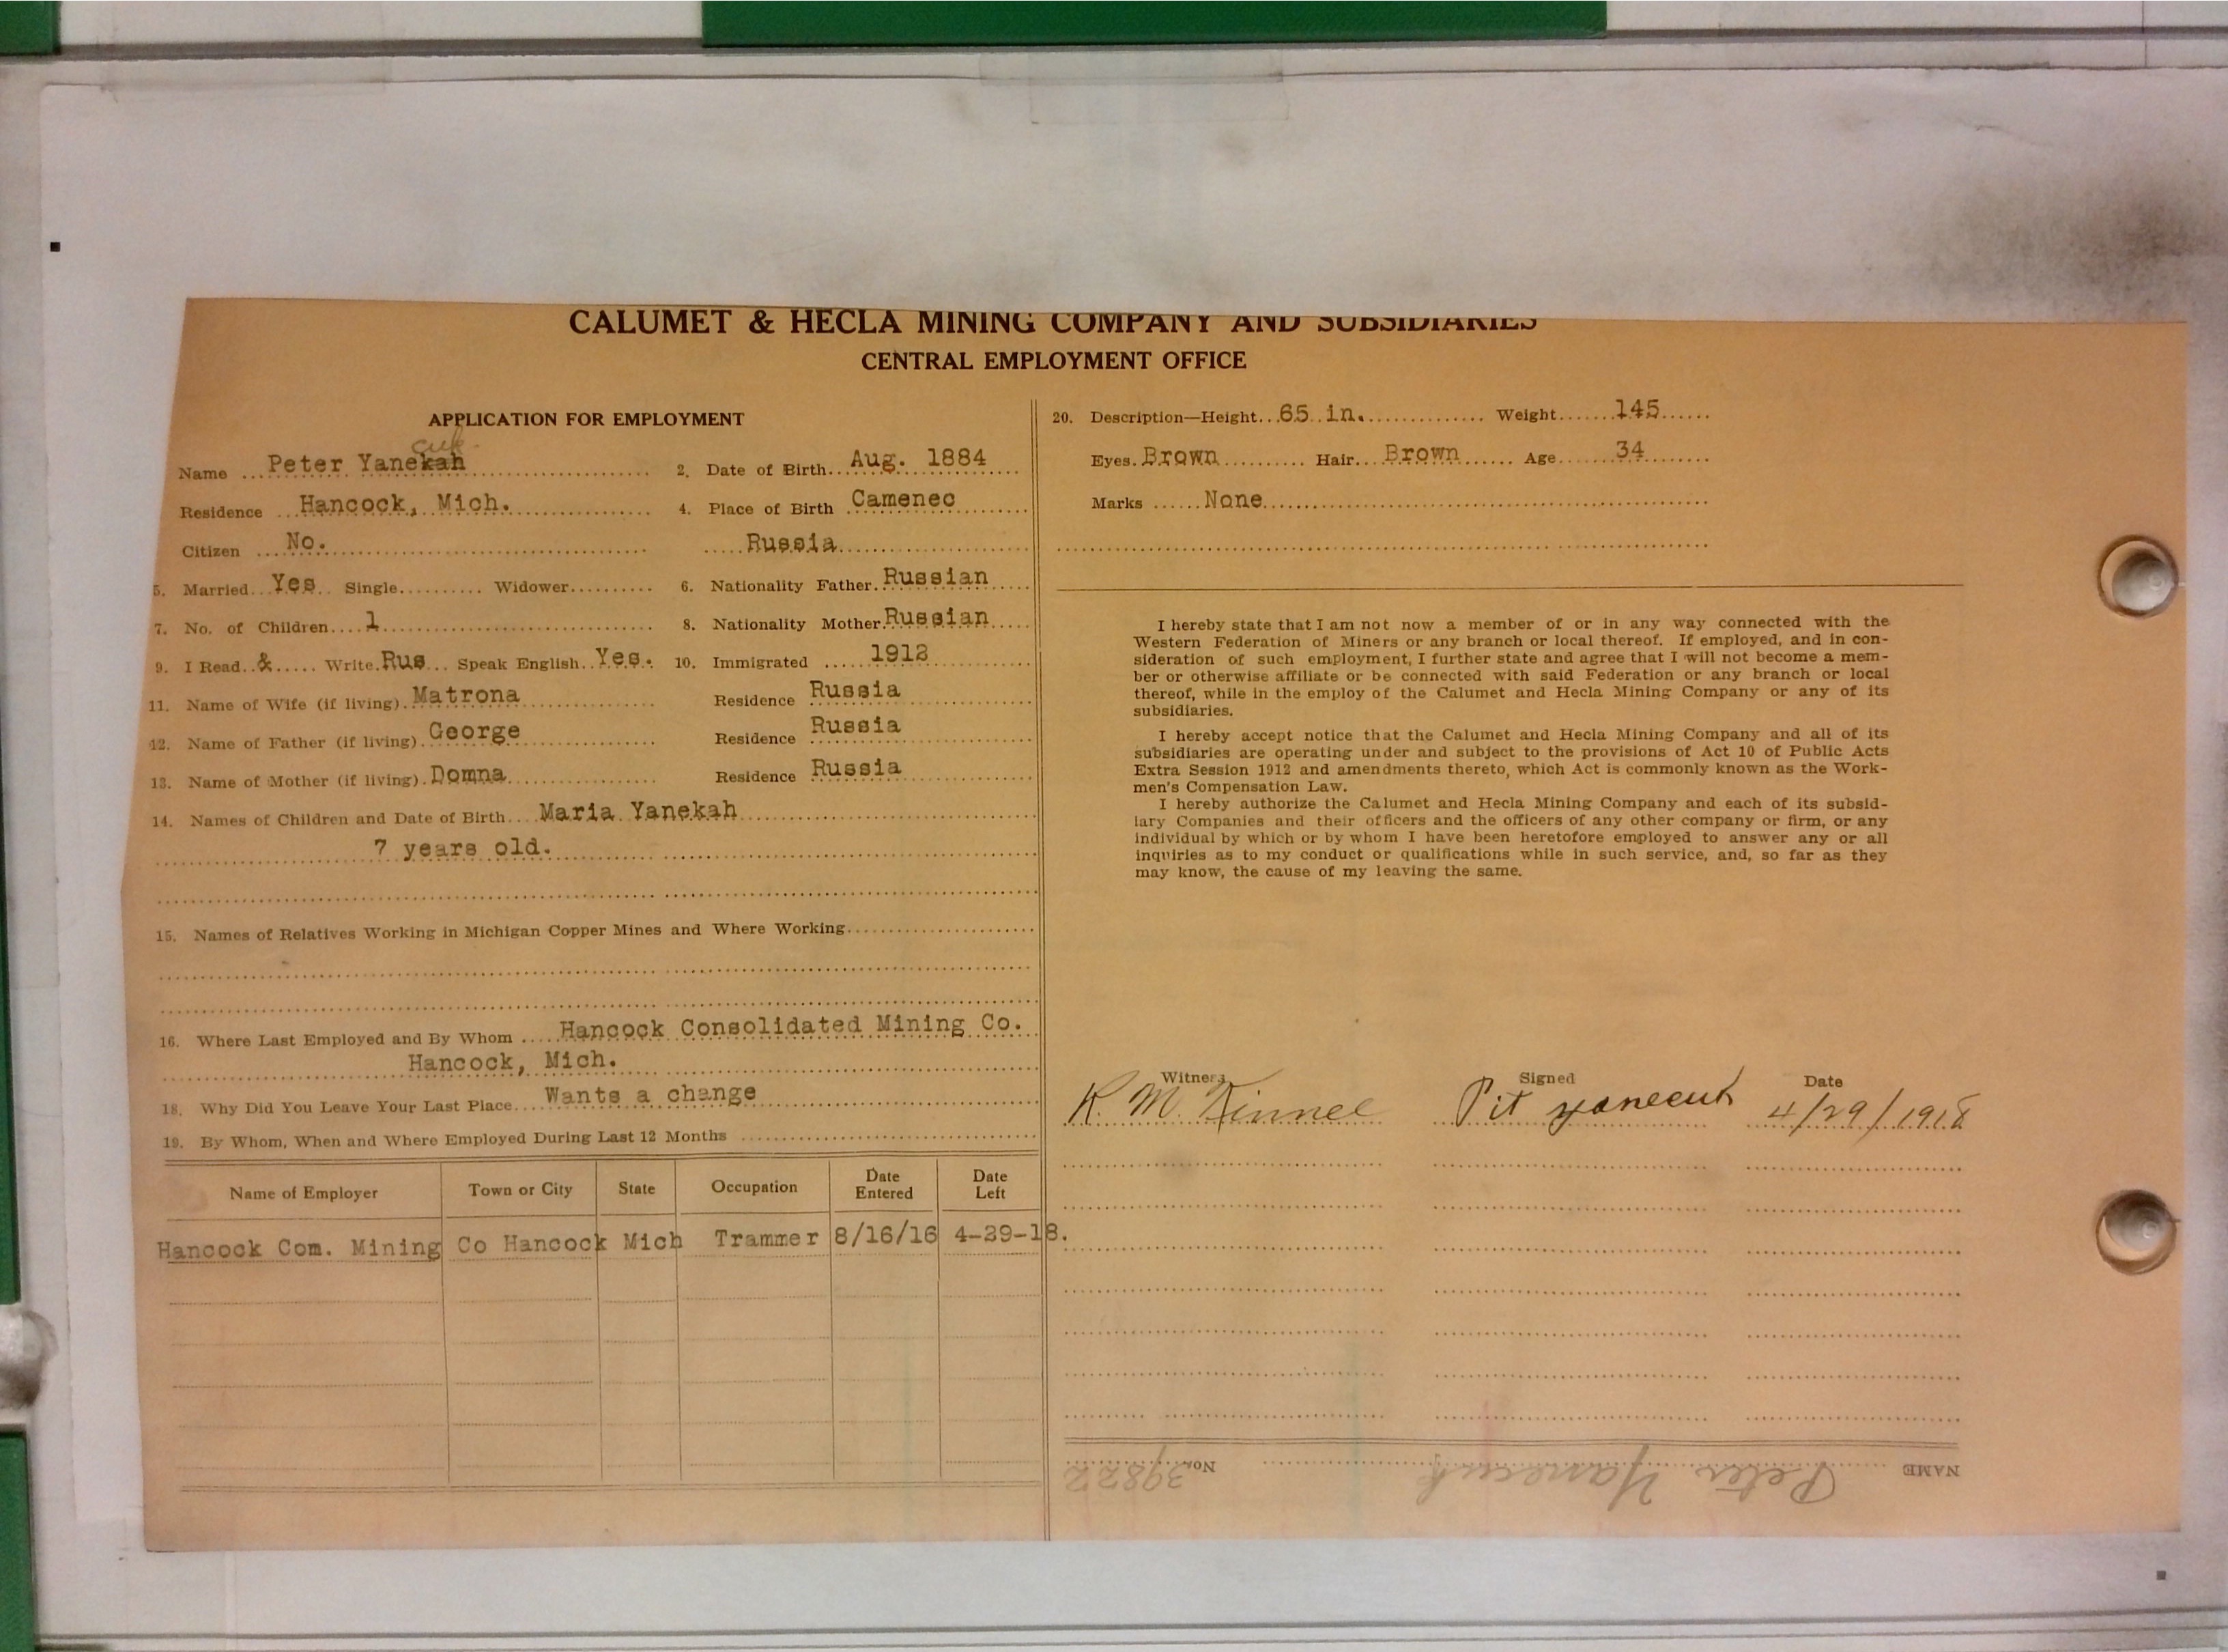 CALUMET & HECLA MINING COMPANY AND SUBSIDIARIES
CENTRAL EMPLOYMENT OFFICE
APPLICATION FOR EMPLOYMENT
cuk
Name Peter Yanekah
2. Date of Birth Aug. 1884
Residence Hancock, Mich.
4. Place of Birth Camenec
Citizen No.
Russia
5. Married Yes Single Widower
6. Nationality Father Russian
7. No. of Children 1
8. Nationality Mother Russian
9. I Read & Write Rus Speak English Yes.
10. Immigrated 1913
11. Name of Wife (if living) Matrona Residence Russia
12. Name of Father (if living) George Residence Russia
13. Name of Mother (if living) Domna Residence Russia
14. Names of Children and Date of Birth Maria Yanekah
7 years old.
15. Names of Relatives Working in Michigan Copper Mines and Where Working
16. Where Last Employed and By Whom Hancock Consolidated Mining Co.
Hancock, Mich.
18. Why Did You Leave Your Last Place Wants a change
19. By Whom, When and Where Employed During Last 12 Months
Name of Employer Town or City State Occupation Date Entered Date Left
Hancock Com. Mining Co Hancock Mich Trammer 8/16/16 4-29-18.
20. Description—Height 65 in. Weight 145
Eyes Brown Hair Brown Age 34
Marks None
I hereby state that I am not now a member of or in any way connected with the
Western Federation of Miners or any branch or local thereof. If employed, and in con-
sideration of such employment, I further state and agree that I will not become a mem-
ber or otherwise affiliate or be connected with said Federation or any branch or local
thereof, while in the employ of the Calumet and Hecla Mining Company or any of its
subsidiaries.
I hereby accept notice that the Calumet and Hecla Mining Company and all of its
subsidiaries are operating under and subject to the provisions of Act 10 of Public Acts
Extra Session 1912 and amendments thereto, which Act is commonly known as the Work-
men's Compensation Law.
I hereby authorize the Calumet and Hecla Mining Company and each of its subsid-
iary Companies and their officers and the officers of any other company or firm, or any
individual by which or by whom I have been heretofore employed to answer any or all
inquiries as to my conduct or qualifications while in such service, and, so far as they
may know, the cause of my leaving the same.
Witness Signed Date
K. M. Kinnel Pit yanecuk 4/29/1918
NAME Peter Yanecuk No. 39822